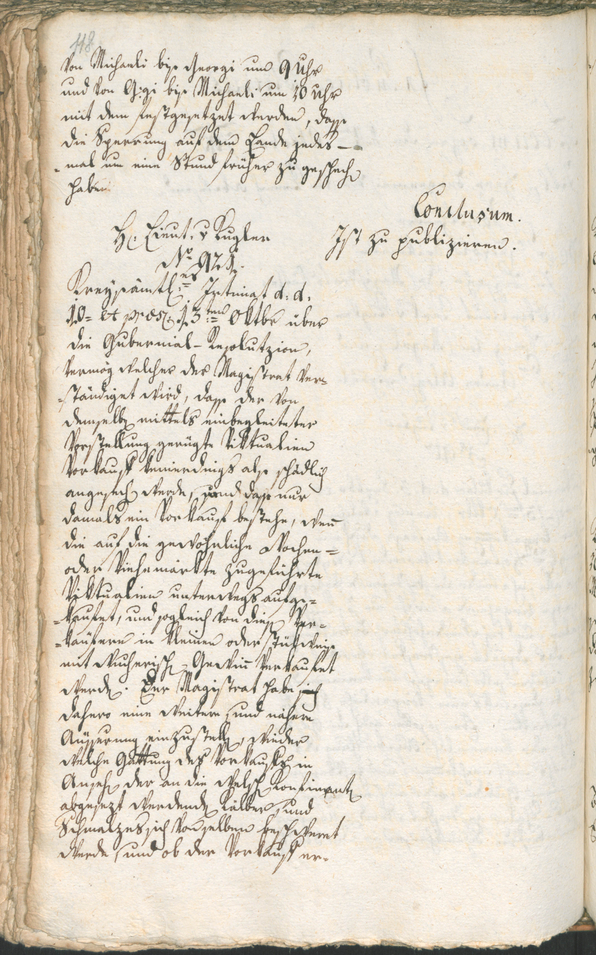 418.
von Michaeli bis Georgi um 9 Uhr
und von Gigi bis Michaeli um 10 Uhr
mit dem festgesetzet werden, dass
die Sperrung auf dem Lande jedes-
mal um eine Stund früher zu geschech
habe.
Conclusum.
H. Lieut. v Kugler
Ist zu publizieren.
No 921.
Kreysämtl. Intimat d: d:
10= et präs. 13ten Oktbr über
die Gubernial-Resoluzion,
vermög welcher der Magistrat ver-
ständiget wird, dass der von
demselb mittels einbegleiteter
Vorstellung gerügte Viktualien
Vorkauf keinerdings als schädlich
angesech werde, und dass nur
damals ein Vorkauf bestehe, wen
die auf die gewöhnliche Wochen-
oder Viehmärkte zugeführte
Viktualien unterwegs aufge-
kaufet, und sogleich von dies Ver-
käufern in kleinen oder stükweis
mit wucherisch Gewin verkaufet
werde. Der Magistrat habe sich
dahero eine weitere und nähere
Äusserung einzustell, wieder
welche Gattung des Vorkaufs in
Anseh der an die welsch Konfinant
abgesezt werdende Kälber und
Schmalzes sich von selben beschwert
werde, und ob der Vorkauf er-